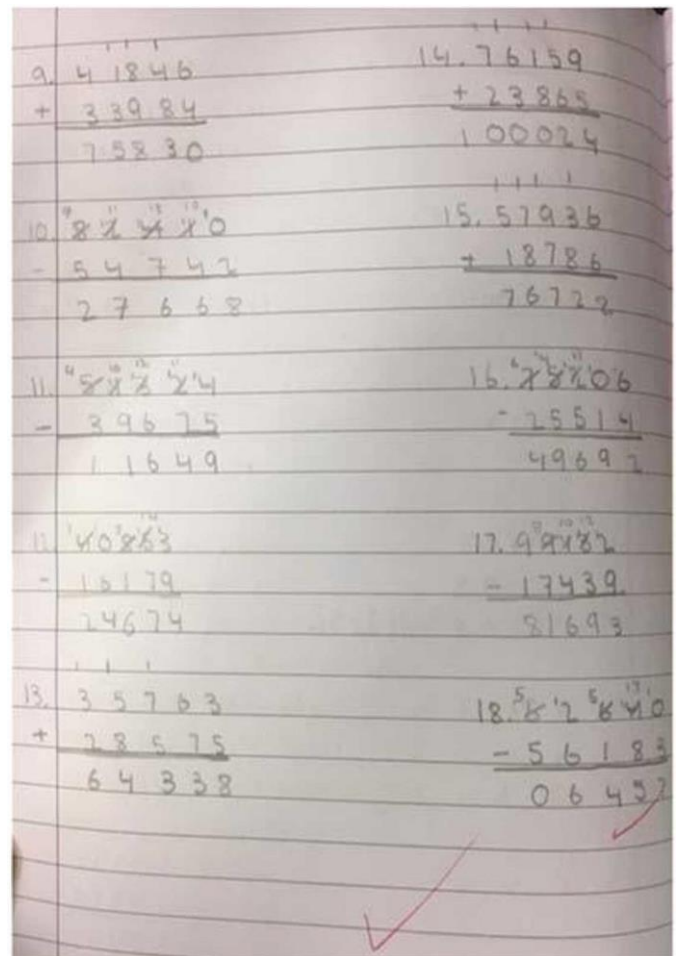 9. 41846
+ 33984
75830
10. 82410
- 54742
27668
11. 51324
- 39675
11649
12. 40853
- 16179
24674
13. 35763
+ 28575
64338
14. 76159
+ 23865
100024
15. 57936
+ 18786
76722
16. 75206
- 25514
49692
17. 99132
- 17439
81693
18. 62640
- 56183
06457